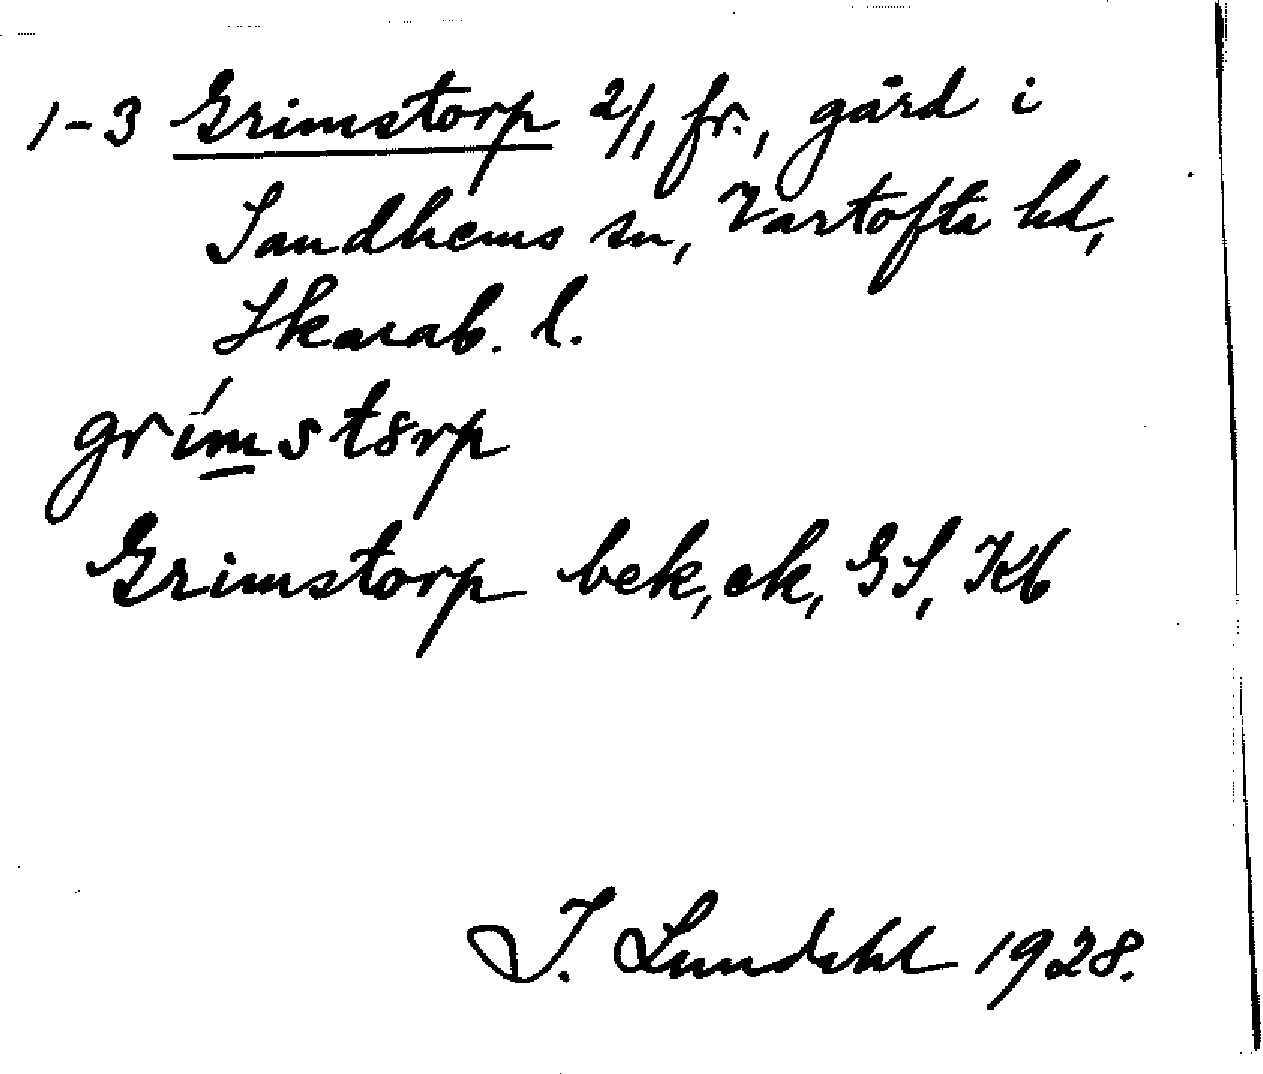 1-3 Grimstorp 2/1 fr., gård i
Sandhems sn, Vartofta hd,
Skarab. l.
grímstorp
Grimstorp bek, ek, GS, Kb
I. Lundahl 1928.